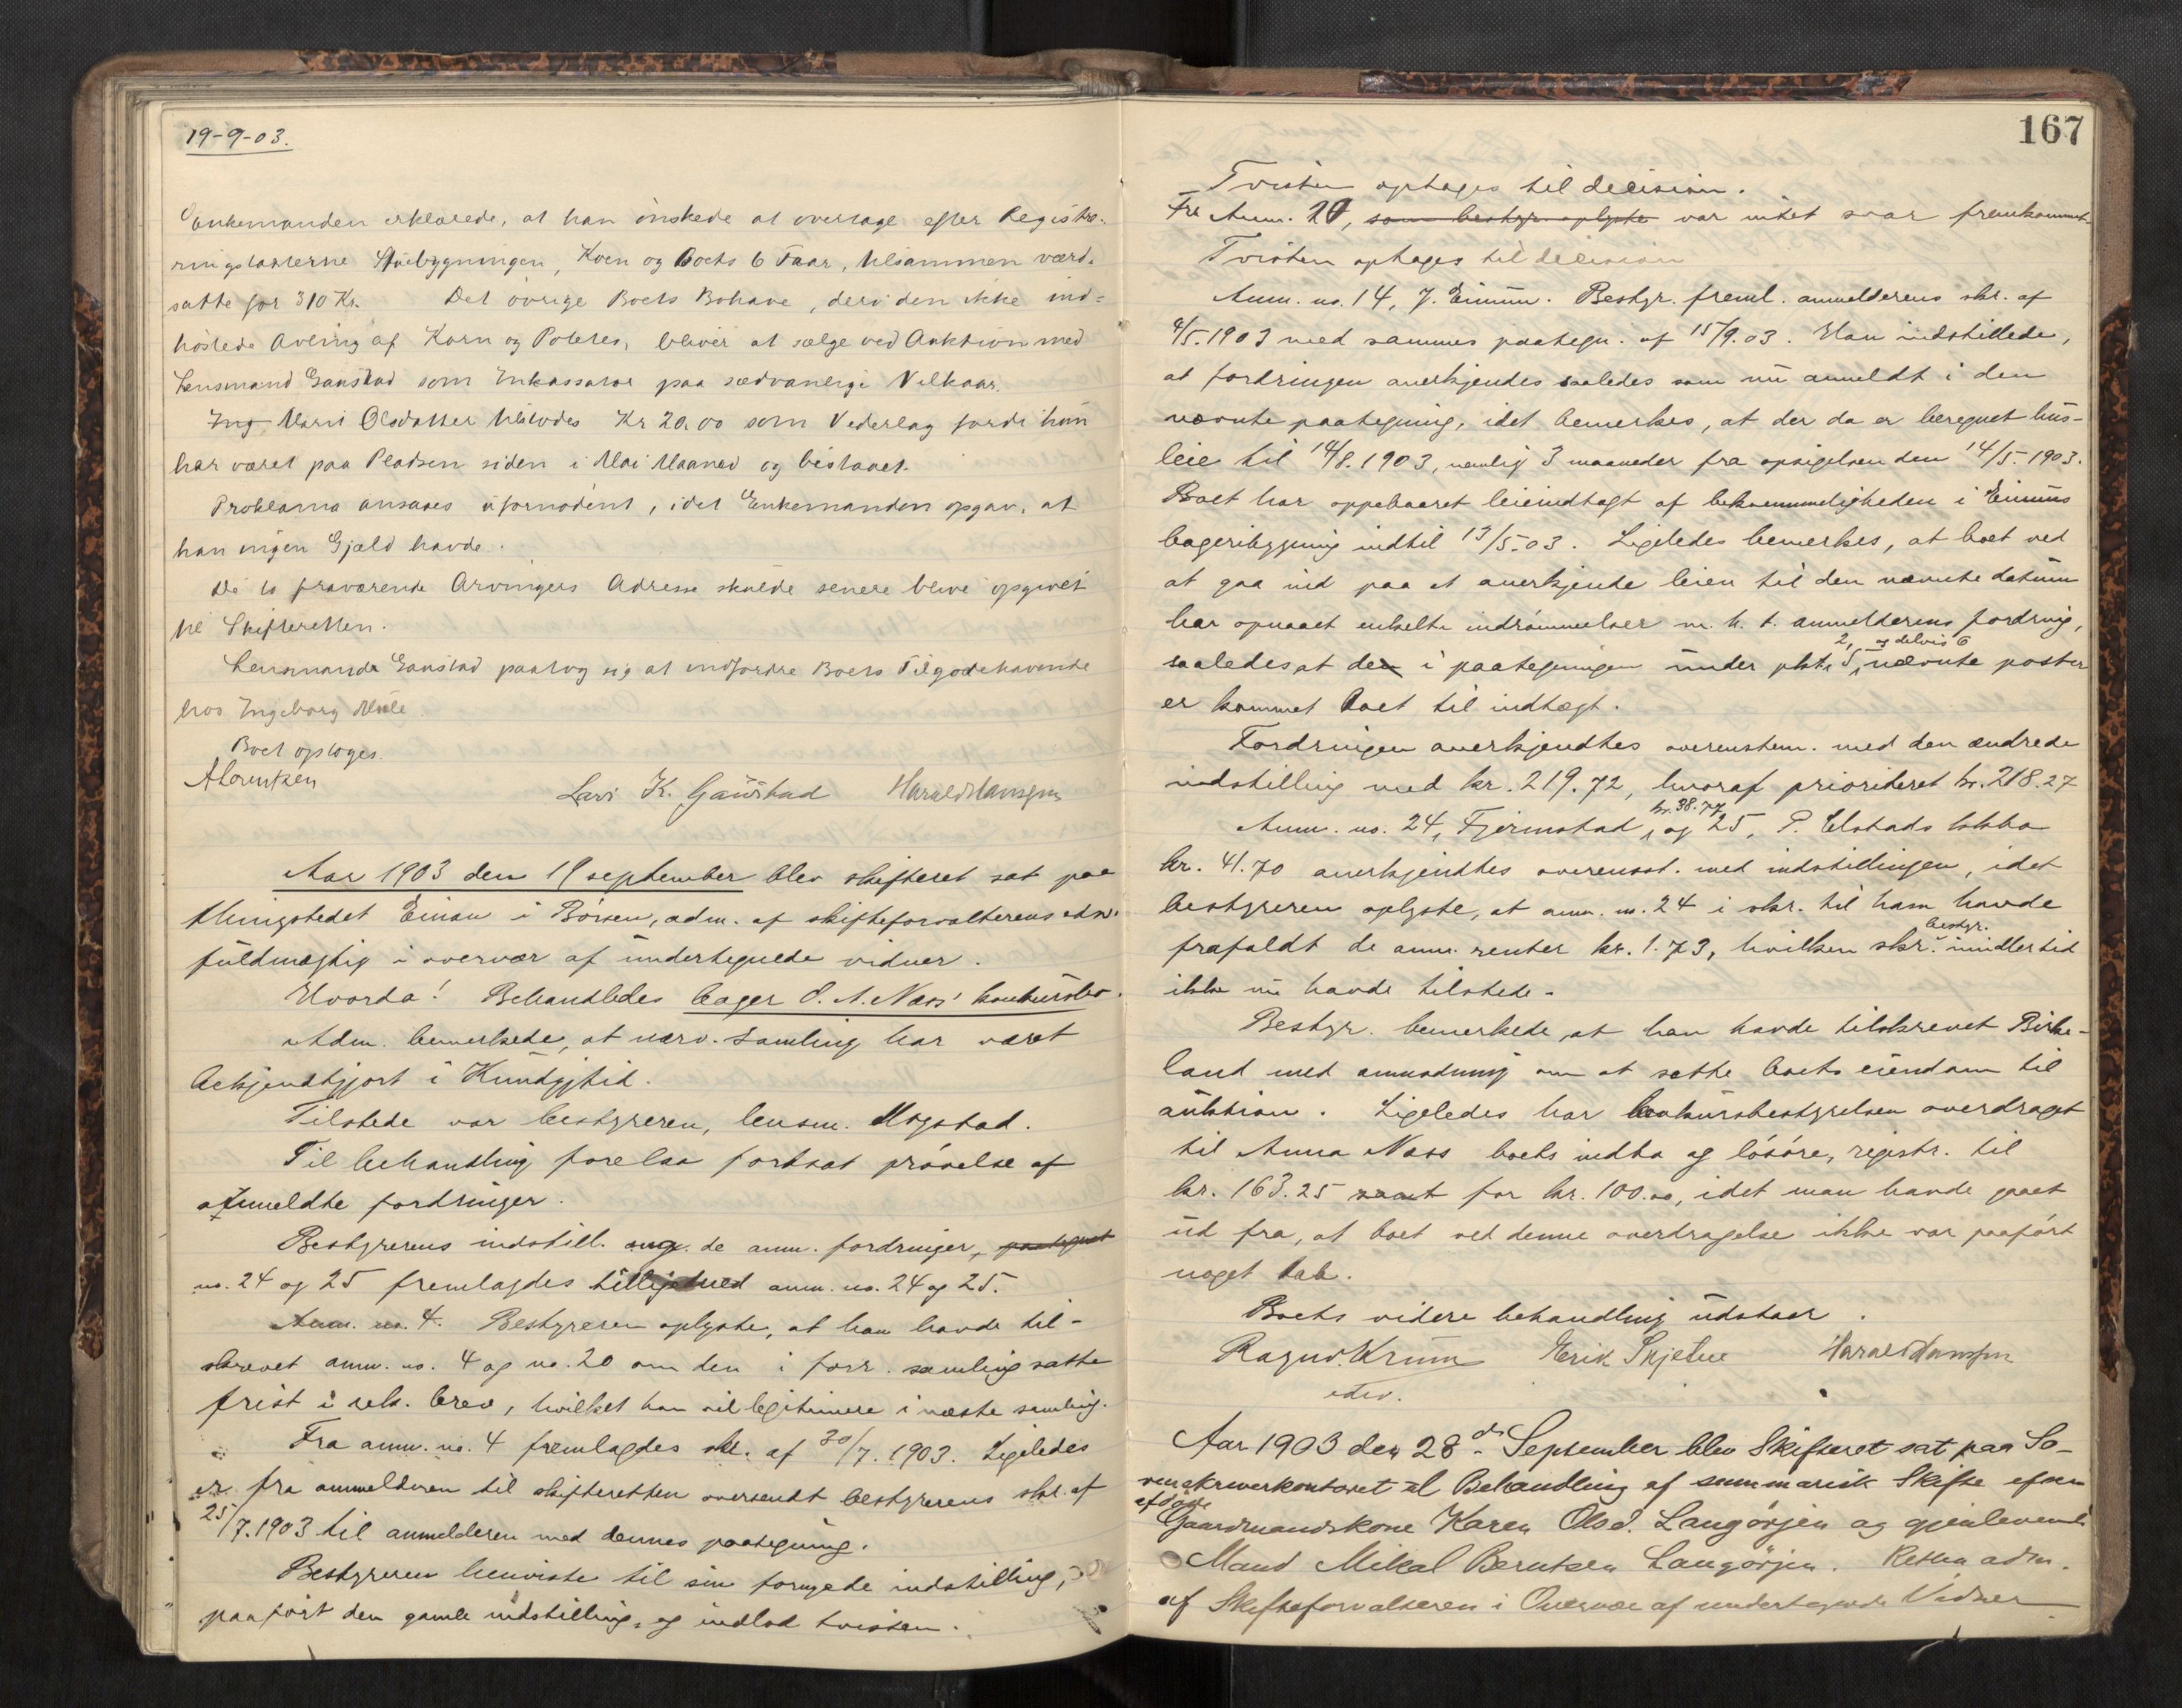 19-9-03.
Enkemanden erklærede, at han ønskede at overtage efter Registre-
ringstaksterne Stuebygningen, Koen og Boets 6 Faar, tilsammen værd-
satte for 310 Kr. Det øvrige Boets Bohave, deri den ikke ind-
høstede Avling af Korn og Poteter, bliver at sælge ved Auktion med
Lensmand Gaustad som Inkassator paa sædvanlige Vilkaar.
Marit Olsdatter tilstodes Kr 20.00 som Vederlag fordi hun
har været paa Pladsen siden i Mai Maaned og bistaaet.
Proklama ansaaes ufornødent, idet Enkemanden opgav, at
han ingen Gjæld havde.
De to fraværende Arvingers Adresse skulde senere blive opgivet
til Skifteretten.
Lensmand Gaustad paatog sig at indfordre Boets Tilgodehavende
hos Ingeborg Moe
Boet optoges.
ALorentzen
Lars K. Gaustad Harald Hansen
Aar 1903 den 19 september blev skifteret sat paa
thingstedet Einan i Børsen, adm. af skifteforvalterens edsv.
fuldmægtig i overvær af undertegnede vidner.
Hvorda! Behandledes bager O. A. Næss' konkursbo.
Adm. bemerkede, at nærv. samling har været
bekjendtgjort i Kundgjtid.
Tilstede var bestyreren, lensm. Mogstad.
Til behandling forelaa fortsat prøvelse af
anmeldte fordringer.
Bestyrerens indstill. ang. de anm. fordringer,
no. 24 og 25 fremlagdes tilligemed anm. no. 24 og 25.
Anm. no. 4. Bestyreren oplyste, at han havde til-
skrevet anm. no. 4 og no. 20 om den i forr. samling satte
frist i rek. brev, hvilket han vil legitimere i næste samling.
Fra anm. no. 4 fremlagdes skr. af 30/7. 1903. Ligeledes
er fra anmelderen til skifteretten oversendt bestyrerens skr. af
25/7. 1903 til anmelderen med dennes paategning.
Bestyreren henviste til sin fornyede indstilling,
paaført den gamle indstilling, og indlod tvisten.
167
Tvisten optages til decision.
Fra Anm. 20, som bestyr. oplyste var intet svar fremkommet
Tvisten optages til decision
Anm. no. 14, J. Eimun. Bestyr. freml. anmelderens skr. af
4/5. 1903 med sammes paategn. af 15/9. 03. Han indstillede,
at fordringen anerkjendes saaledes som nu anmeldt i den
nævnte paategning, idet bemerkes, at der da er beregnet hus-
leie til 14/8. 1903, nemlig 3 maaneder fra opsigelsen den 14/5. 1903.
Boet har oppebaaret leieindtægt af bekvemmeligheden i Eimuns
bageribygning indtil 13/5. 03. Ligeledes bemerkes, at boet ved
at gaa ind paa at anerkjende leien til den nævnte datum
har opnaaet enkelte indrømmelser m. h. t. anmelderens fordring,
saaledes at de i paategningen under pkt. 2, 5, og delvis 6 nævnte poster
er kommet boet til indtægt.
Fordringen anerkjendtes overenstem. med den ændrede
indstilling med kr. 219.72, hvoraf prioriteret kr. 218.27
Anm. no. 24, Fjermstad kr. 38.77, og 25, P. Elstads
kr. 41.70 anerkjendtes overensst. med indstillingen, idet
bestyreren oplyste, at anm. no. 24 i skr. til ham havde
frafaldt de anm. renter kr. 1.73, hvilken skr. bestyr. imidlertid
ikke nu havde tilstede.
Bestyr. bemerkede, at han havde tilskrevet Birke-
land med anmodning om at sætte boets eiendom til
auktion. Ligeledes har konkursbestyrelsen overdraget
til Anna Næss boets indbo og løsøre, registr. til
kr. 163.25 for kr. 100.00, idet man havde gaaet
ud fra, at boet ved denne overdragelse ikke var paaført
noget tab.
Boets videre behandling udstaar.
Ragnv. Krum Erik Skjetne Harald Hansen
edsv.
Aar 1903 den 28de September blev Skifteret sat paa So-
renskriverkontoret til Behandling af summarisk Skifte efter
afdøde
Gaardmandskone Karen Olsd. Langørjen og gjenlevende
Mand Mikal Berntsen Langørjen. Retten adm.
af Skifteforvalteren i Overvær af undertegnede Vidner